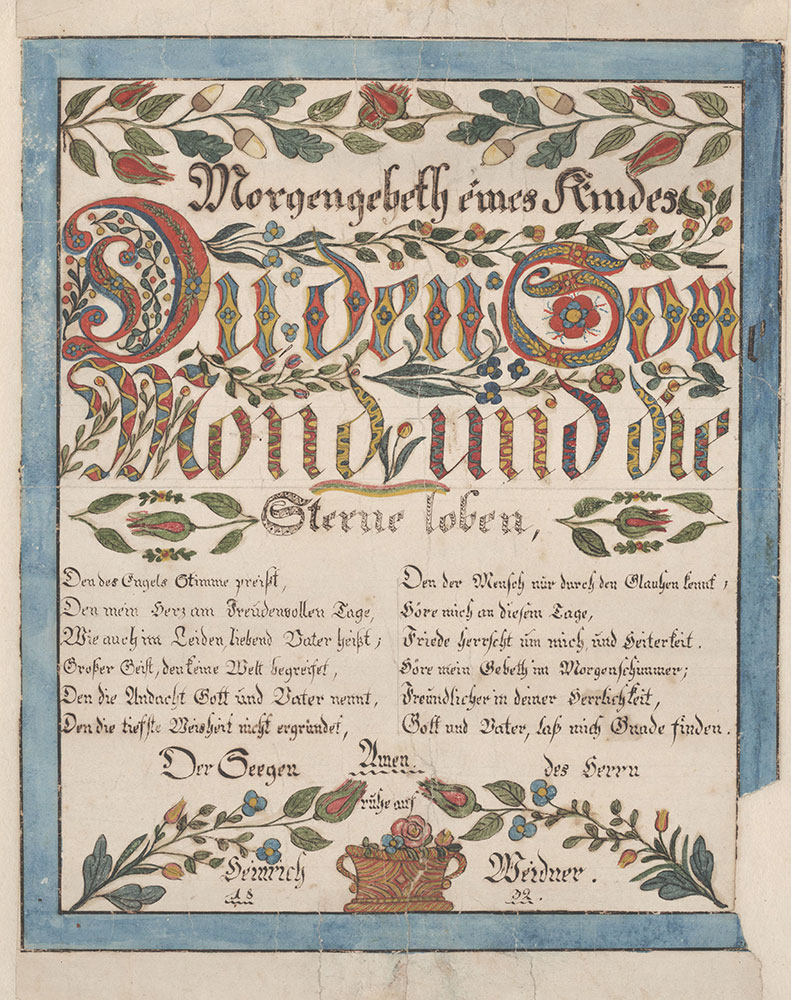 Morgengebeth eines Kindes.
Du den Son
Mond und die
Sterne loben,
Den des Engels Stimme preißt,
Den mein Herz am Freudenvollen Tage,
Wie auch im Leiden, liebend Vater heißt;
Großer Geist, den keine Welt begreifet,
Den die Andacht Gott und Vater nennt,
Den die tiefste Weisheit nicht ergründet,
Den der Mensch nur durch den Glauben kennt;
Höre mich an diesem Tage,
Friede herrscht um mich, und Heiterkeit.
Höre mein Gebeth im Morgenschimmer;
Freundlicher in deiner Herrlichkeit,
Gott und Vater, laß mich Gnade finden.
Amen.
Der Seegen des Herrn
ruhe auf
Heinrich Weidner.
18 32.